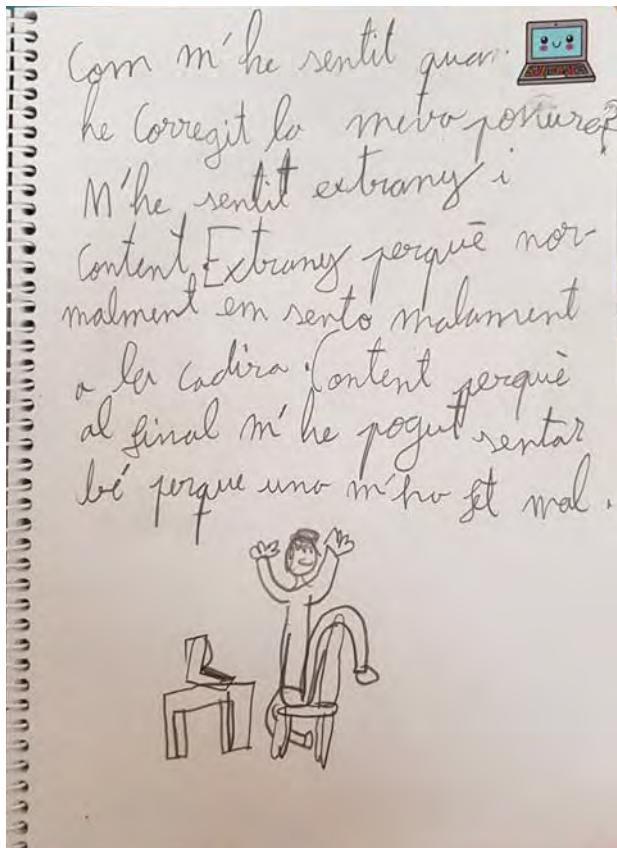 Com m'he sentit quan
he Corregit la meva postura?
M'he sentit extrany i
content. Extrany perquè nor-
malment em sento malament
a la cadira. Content perquè
al final m'he pogut sentar
bé perque m'ho fet mal.